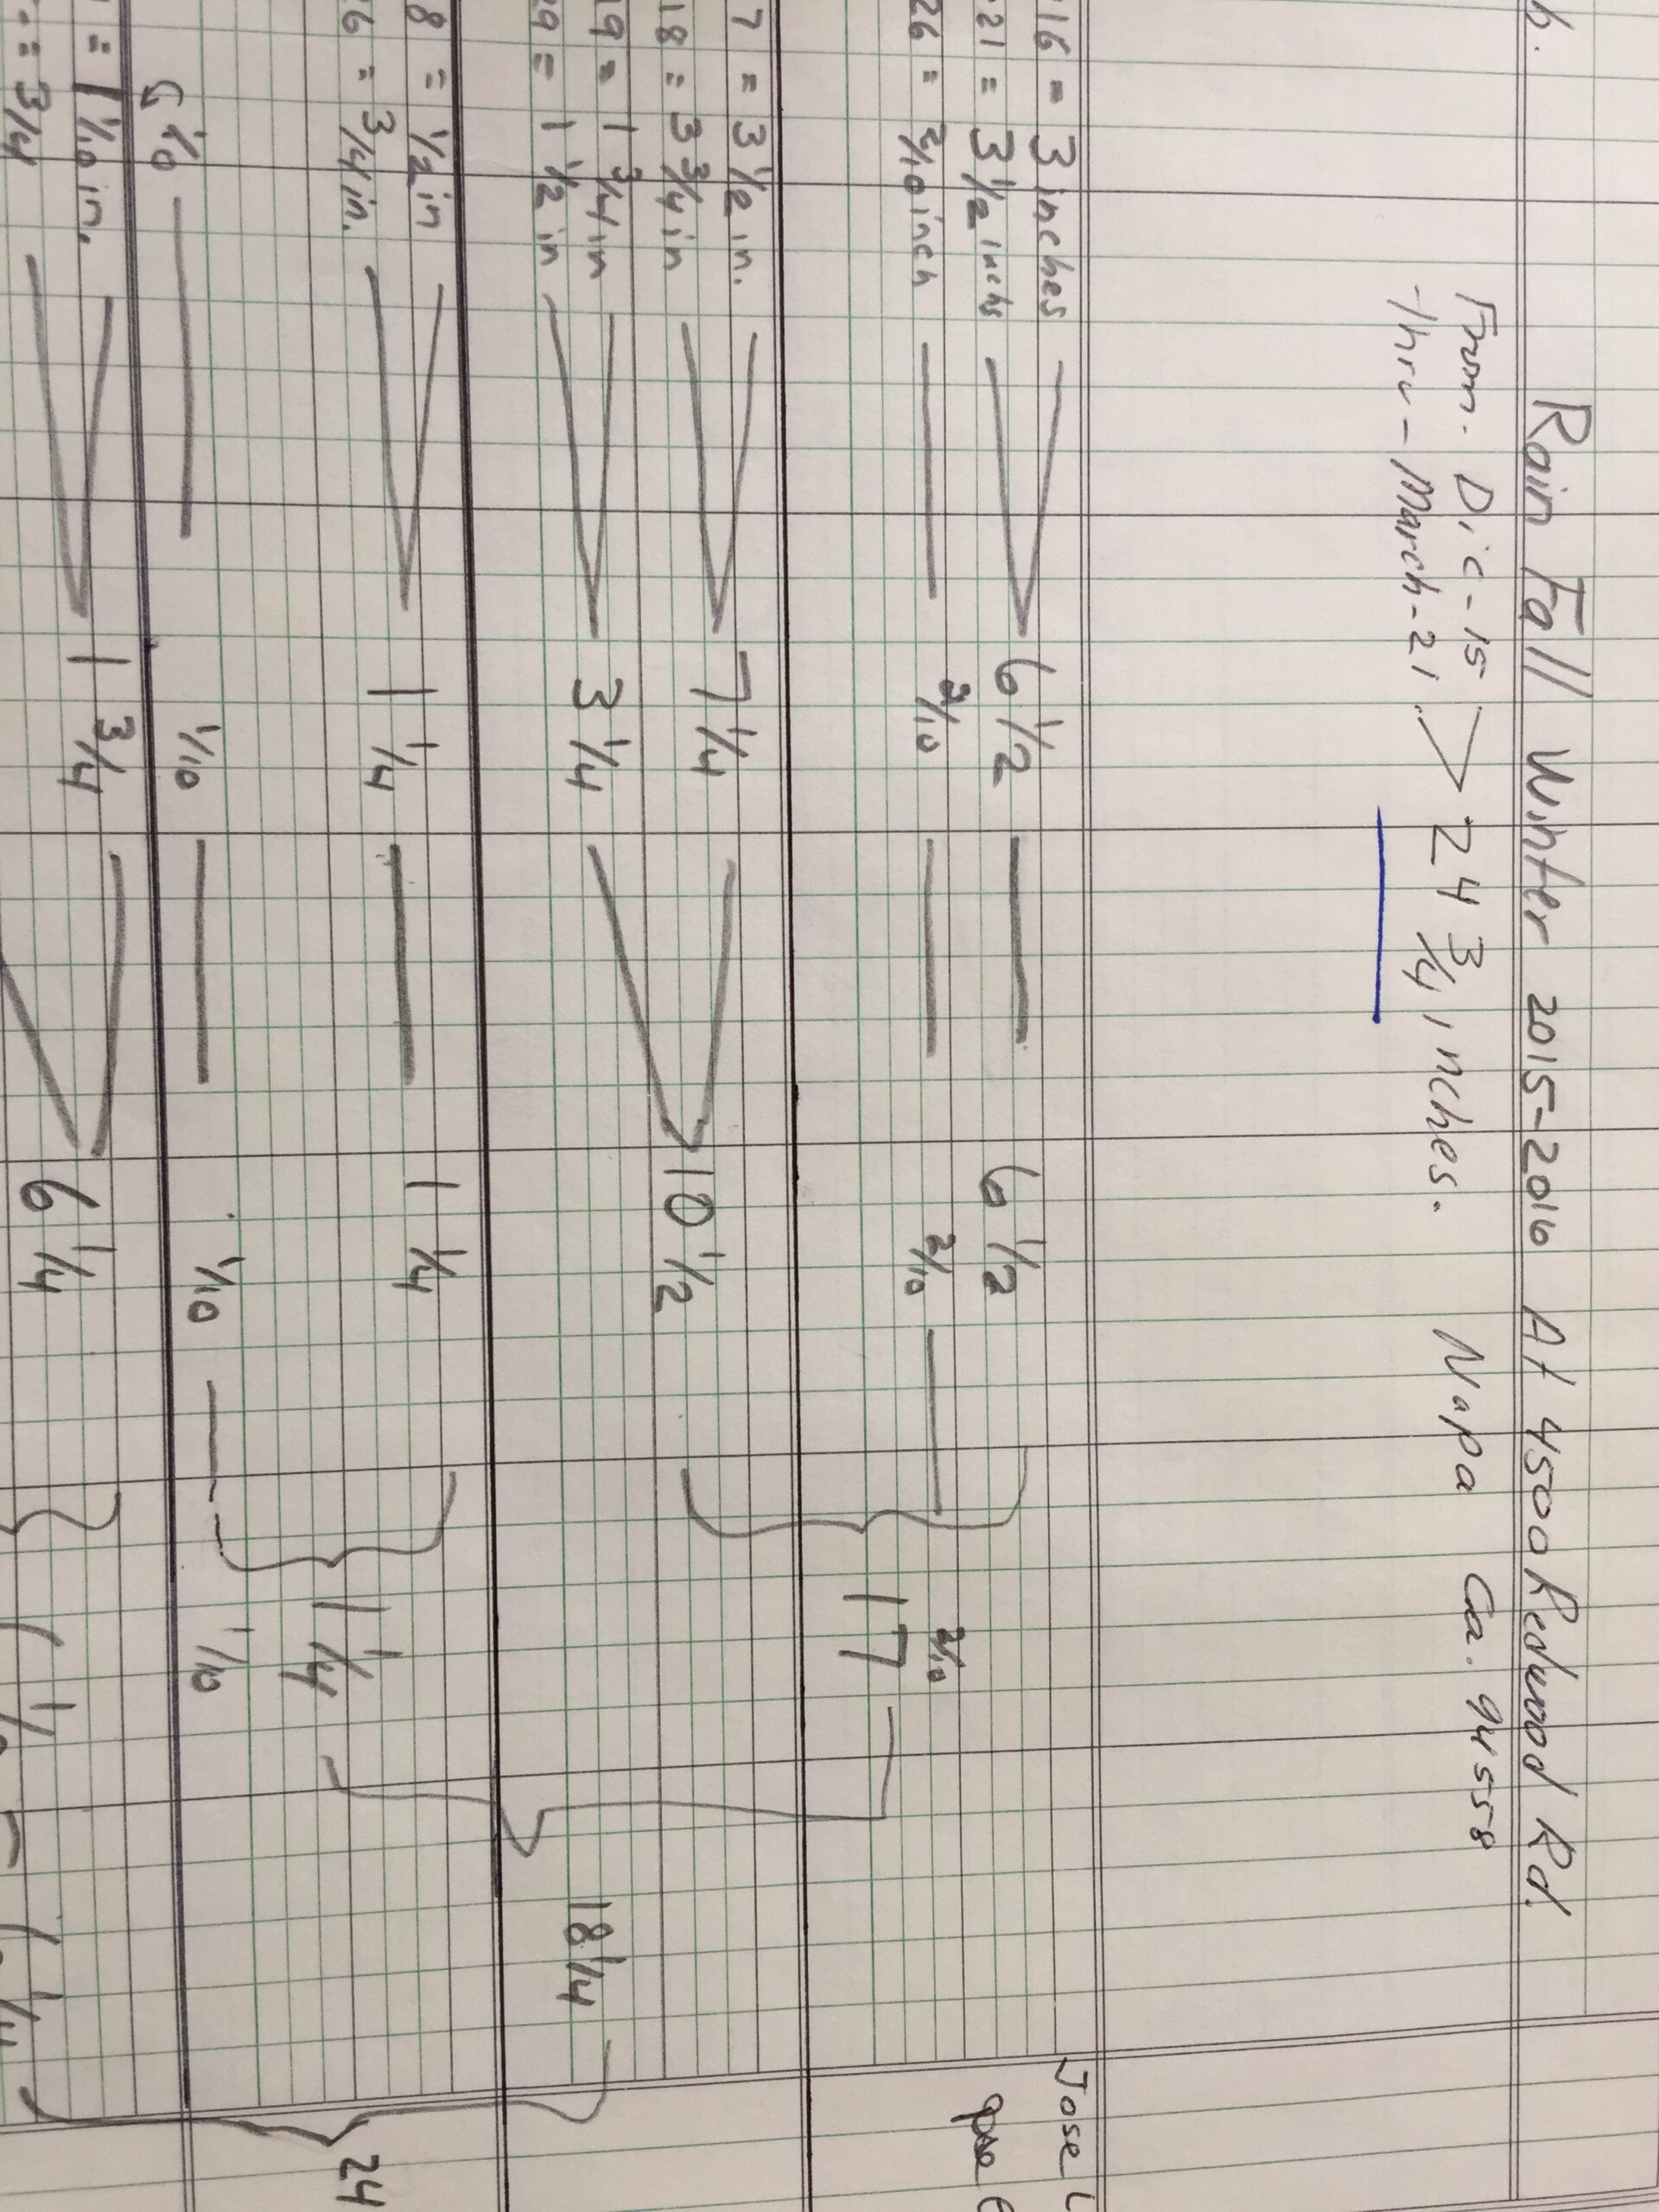 6. Rain Fall Winter 2015-2016 At 4500 Redwood Rd.
From. Dic-15
Thru - March-21. > 24 3/4 inches. Napa Ca. 94558
16 = 3 inches
21 = 3 1/2 inchs 6 1/2 6 1/2 Jose
26 = 2/10 inch 2/10 2/10 2/10
17
7 = 3 1/2 in. 7 1/4
18 = 3 3/4 in 10 1/2
19 = 1 3/4 in 3 1/4 18 1/4
29 = 1 1/2 in
8 = 1/2 in 1 1/4 1 1/4
6 = 3/4 in. 1 1/4 24
1/10 1/10 1/10 1/10
= 1 1/10 in. 1 3/4 6 1/4
= 3/4